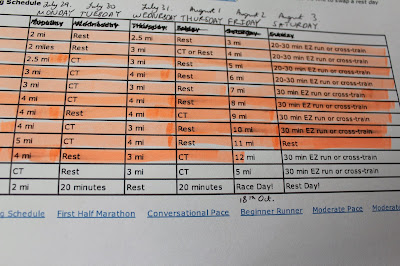 g Schedule July 29. July 30 July 31. August 1 August 2 August 3 to swap a rest day
MONDAY TUESDAY WEDNESDAY THURSDAY FRIDAY SATURDAY
2 mi Rest 2.5 mi Rest 3 mi 20-30 min EZ run or cross-train
3 mi CT or Rest 4 mi 20-30 min EZ run or cross-train
CT 3 mi Rest 5 mi 20-30 min EZ run or cross-train
Rest 3 mi Rest 7 mi 20-30 min EZ run or cross-train
4 mi CT 3 mi Rest 8 mi 30 min EZ run or cross-train
4 mi Rest 3 mi CT 9 mi 30 min EZ run or cross-train
4 mi CT 3 mi Rest 10 mi 30 min EZ run or cross-train
5 mi CT 3 mi CT 11 mi Rest
4 mi Rest 3 mi CT 12 mi 30 min EZ run or cross-train
CT Rest 3 mi CT 5 mi 30 min EZ run or cross-train
2 mi 20 minutes Rest 20 minutes Race Day! Rest Day!
18th Oct.
g Schedule First Half Marathon Conversational Pace Beginner Runner Moderate Pace Moderate